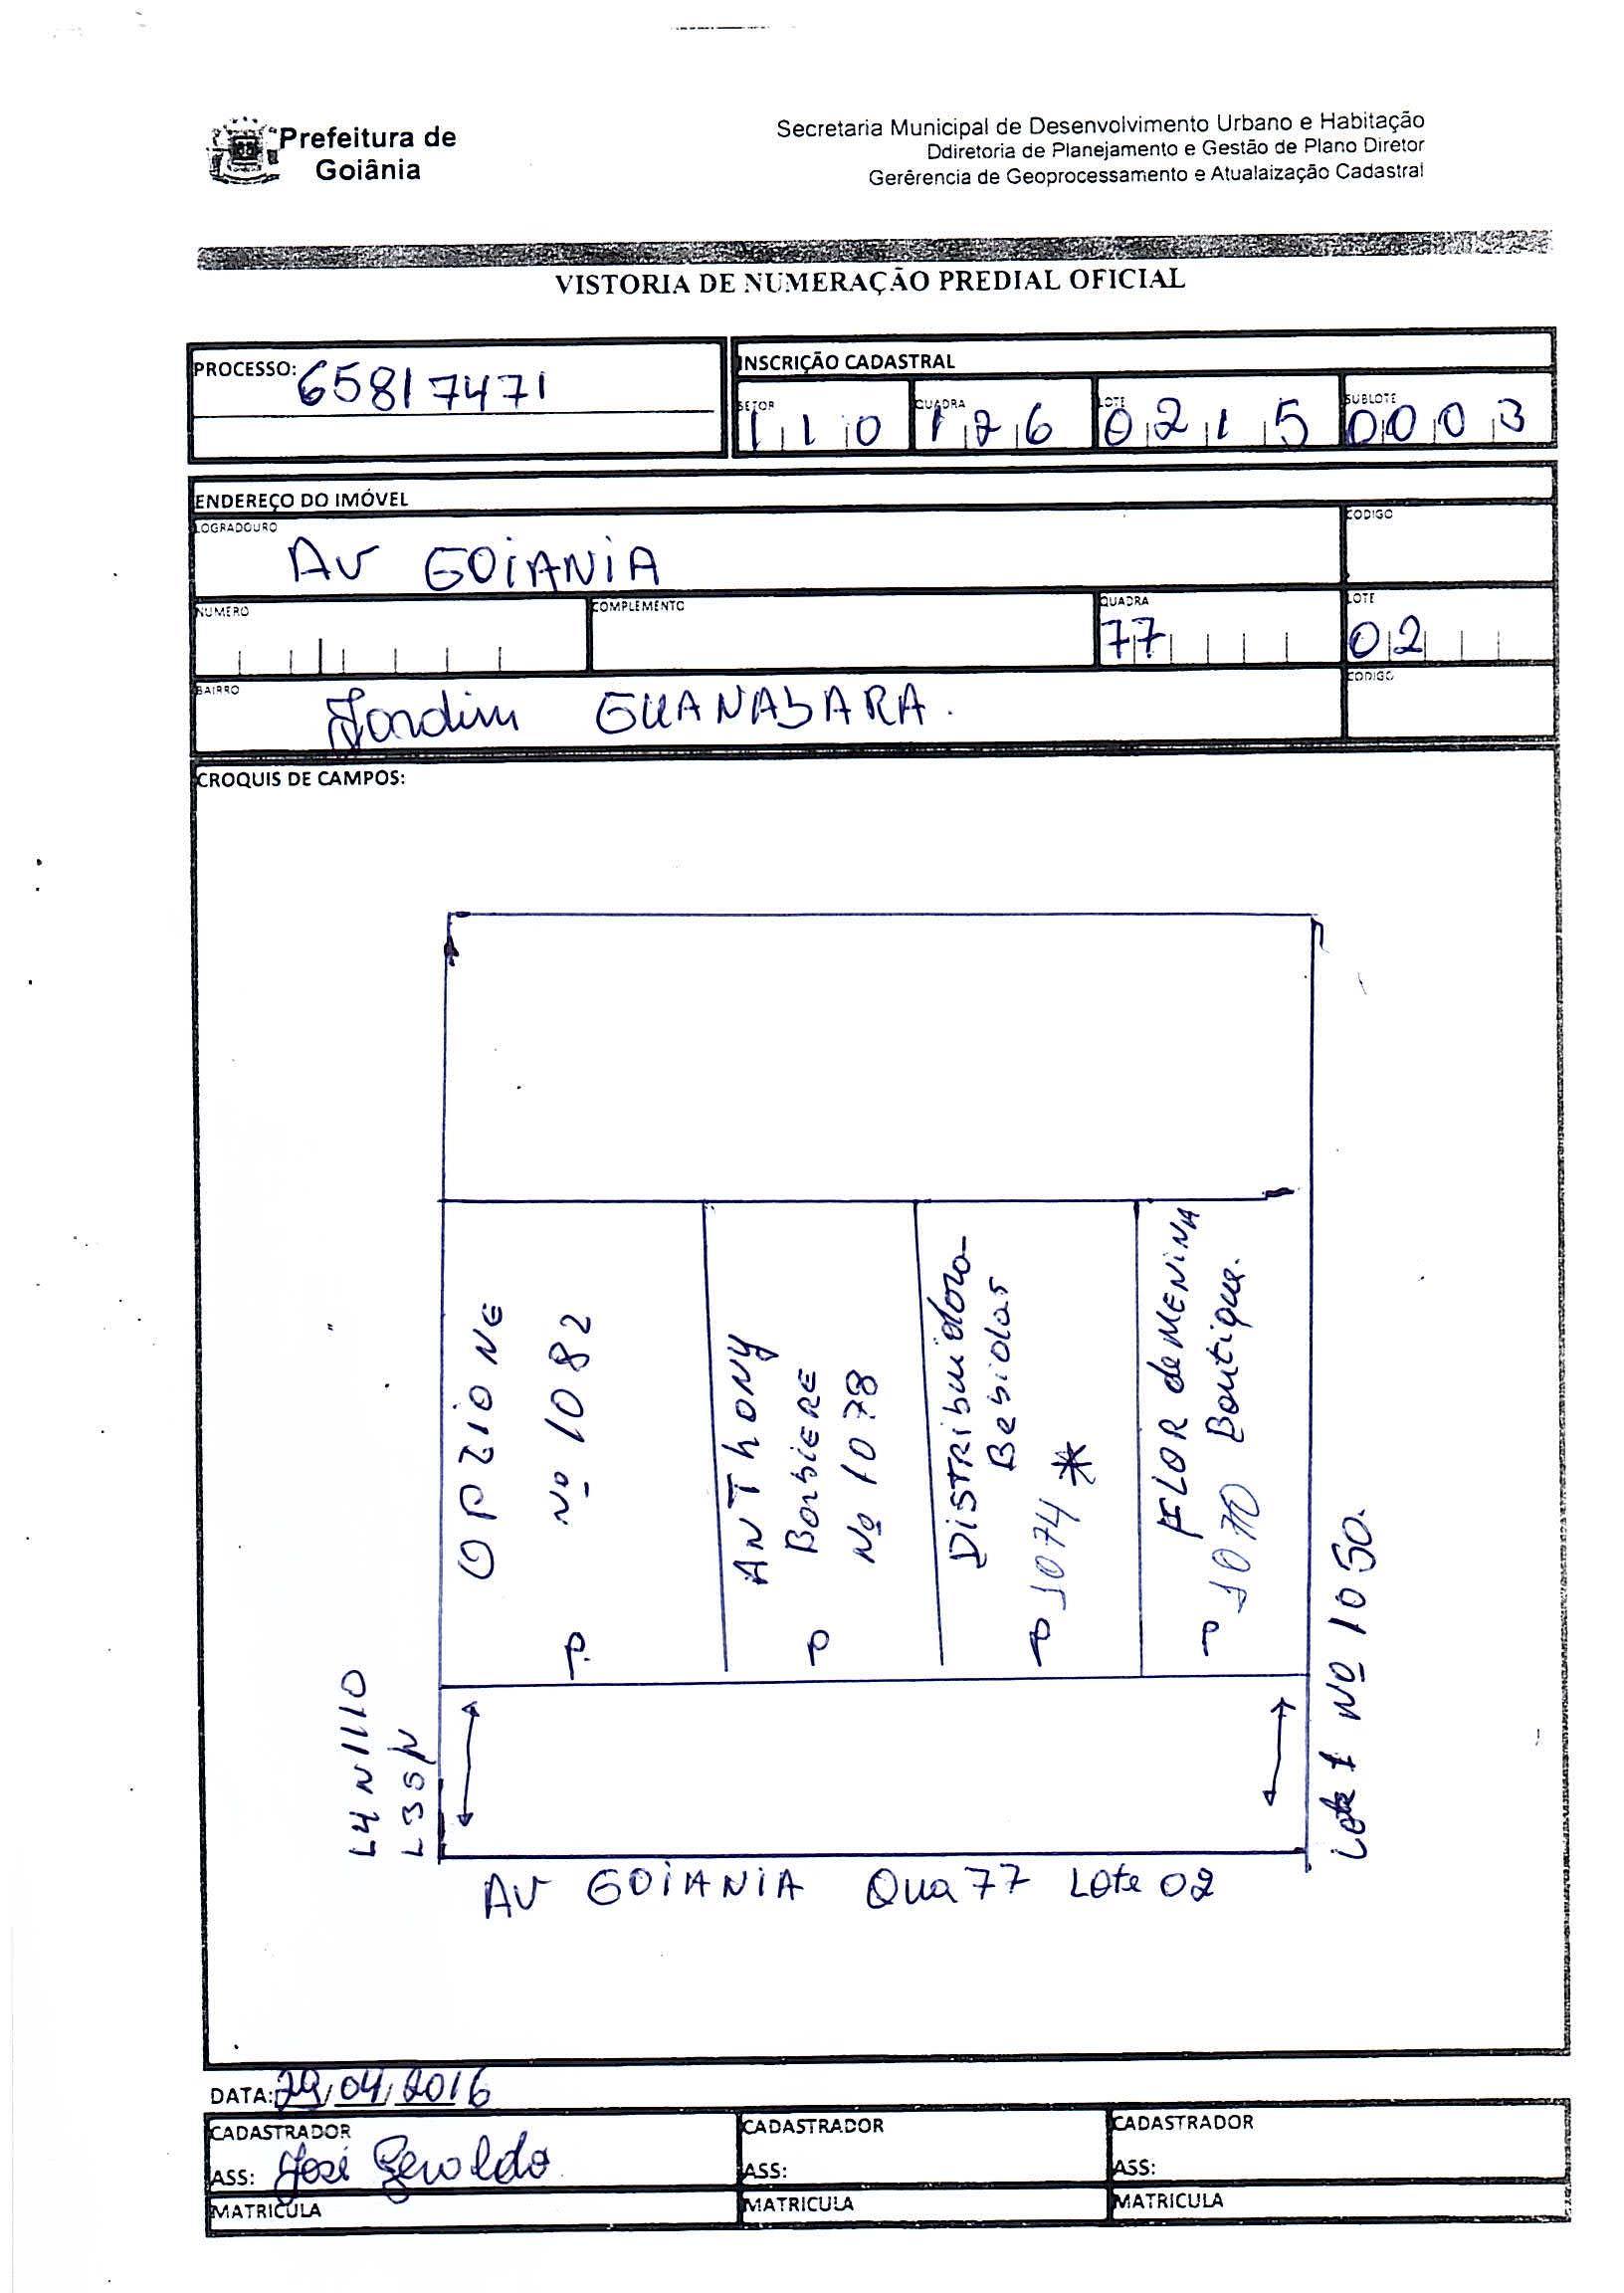 Prefeitura de
Goiânia
Secretaria Municipal de Desenvolvimento Urbano e Habitação
Ddiretoria de Planejamento e Gestão de Plano Diretor
Gerêrencia de Geoprocessamento e Atualaização Cadastral
VISTORIA DE NUMERAÇÃO PREDIAL OFICIAL
PROCESSO: 65817471
INSCRIÇÃO CADASTRAL
SETOR 110 QUADRA 126 LOTE 0215 SUBLOTE 0003
ENDEREÇO DO IMÓVEL
LOGRADOURO CODIGO
AV GOIANIA
NUMERO COMPLEMENTO QUADRA 77 LOTE 02
BAIRRO CODIGO
Jardim GUANABARA.
CROQUIS DE CAMPOS:
OPZIONE
Nº 1082
ANThONY
BarbiERE
Nº 1078
DiSTRibuidora
Bebidas
1074 *
FLOR de MENINA
Boutique.
1070
L4 N 1110
L3 S/N
Lote 1 Nº 1050.
AV GOIANIA Qua 77 Lote 02
DATA: 29/04/2016
CADASTRADOR CADASTRADOR CADASTRADOR
ASS: José Geraldo ASS: ASS:
MATRICULA MATRICULA MATRICULA